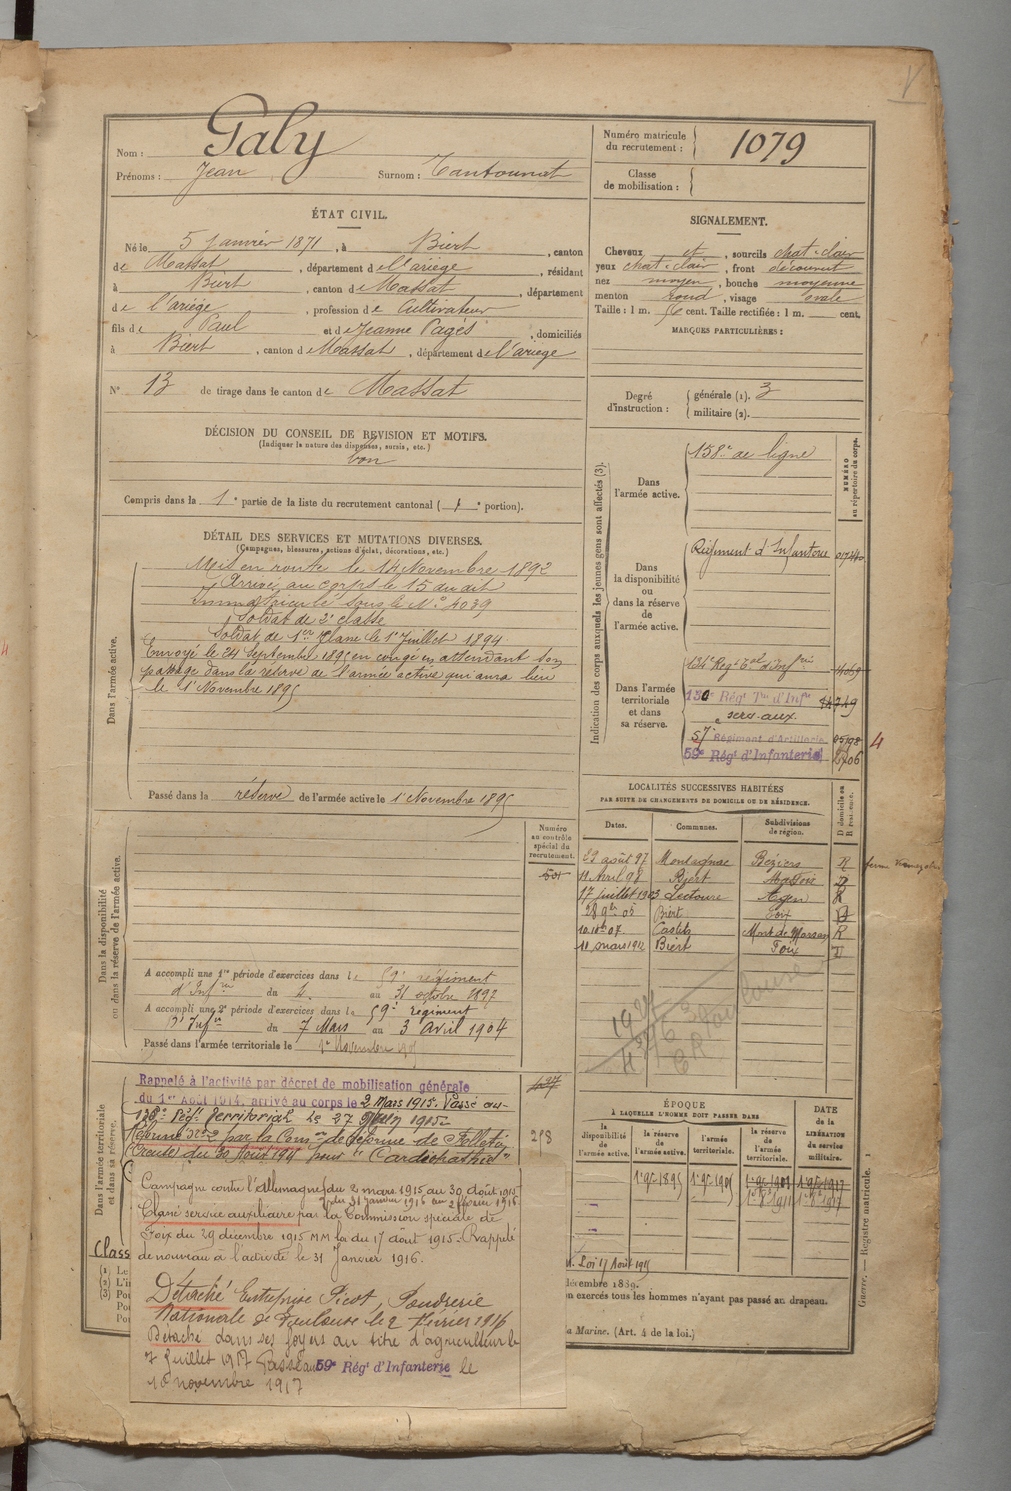 Nom : Galy
Prénoms : Jean Surnom : Tantounat
Numéro matricule du recrutement : 1079
Classe de mobilisation :
ÉTAT CIVIL.
Né le 5 Janvier 1871, à Biert, canton
de Massat, département de l'ariège, résidant
à Biert, canton de Massat, département
de l'ariège, profession de Cultivateur
fils de Paul et de Jeanne Pagès, domiciliés
à Biert, canton de Massat, département de l'ariège
N° 13 de tirage dans le canton de Massat
SIGNALEMENT.
Cheveux et, sourcils chat-clair
yeux chat-clair, front découvert
nez moyen, bouche moyenne
menton rond, visage ovale
Taille : 1 m. cent. Taille rectifiée : 1 m. cent.
MARQUES PARTICULIÈRES :
Degré d'instruction : générale (1). 3
militaire (2).
DÉCISION DU CONSEIL DE REVISION ET MOTIFS.
(Indiquer la nature des dispenses, sursis, etc.)
bon
Compris dans la 1e partie de la liste du recrutement cantonal ( 1e portion).
DÉTAIL DES SERVICES ET MUTATIONS DIVERSES.
(Campagnes, blessures, actions d'éclat, décorations, etc.)
Dans l'armée active.
Mis en route le 14 Novembre 1892
Arrivé au corps le 15 du dit
Immatriculé sous le N° 4039
Soldat de 2e classe
Soldat de 1ère classe le 1er Juillet 1894
Envoyé le 24 Septembre 1895 en congé en attendant son
passage dans la réserve de l'armée active qui aura lieu
le 1er Novembre 1895
Passé dans la réserve de l'armée active le 1er Novembre 1895
Indication des corps auxquels les jeunes gens sont affectés (3).
NUMÉRO au répertoire du corps.
Dans l'armée active.
158e de ligne
Dans la disponibilité ou dans la réserve de l'armée active.
Régiment d'Infanterie
Dans l'armée territoriale et dans sa réserve.
134e Régt Tal d'Infrie
130e Régt Tal d'Infie
serv. aux.
57e Régiment d'Artillerie
59e Régt d'Infanterie 2706
4
LOCALITÉS SUCCESSIVES HABITÉES
PAR SUITE DE CHANGEMENTS DE DOMICILE OU DE RÉSIDENCE.
D domicile ou R résidence.
Dates. Communes. Subdivisions de région.
23 août 97 Montagnac Béziers R
11 Avril 98 Biert Foix D
17 juillet 1903 Lectoure Agen R
28 9bre 05 Biert Foix D
10 07 Castets Mont de Marsan R
11 mars 1912 Biert Foix D
Toulouse
Dans la disponibilité ou dans la réserve de l'armée active.
Numéro au contrôle spécial du recrutement.
A accompli une 1re période d'exercices dans le 59e régiment
d'Infrie du 4 au 31 octobre 1897
A accompli une 2e période d'exercices dans le 59e régiment
d'Infie du 7 Mars au 3 Avril 1904
Passé dans l'armée territoriale le 1er Novembre 1905
Dans l'armée territoriale et dans sa réserve.
Rappelé à l'activité par décret de mobilisation générale
du 1er Août 1914, arrivé au corps le 2 Mars 1915. Passé au
Régt Territorial le 27 Juin 1915
Réformé N° 2 par la Comon de Réforme de Felletin
(Creuse) du 30 Août 1915 pour "Cardiopathie"
218
Campagne contre l'Allemagne du 2 mars 1915 au 30 août 1915
du 31 janvier 1916 au 2 février 1916
Classé service auxiliaire par la Commission spéciale de
Foix du 29 décembre 1915 MM loi du 17 août 1915. Rappelé
de nouveau à l'activité le 31 Janvier 1916.
Détaché Entreprise Picot, Poudrerie
Nationale de Toulouse le 2 février 1916
Détaché dans ses foyers au titre d'agriculteur le
7 juillet 1917 Passé au 59e Régt d'Infanterie le
10 novembre 1917
ÉPOQUE
À LAQUELLE L'HOMME DOIT PASSER DANS
la disponibilité de l'armée active. la réserve de l'armée active. l'armée territoriale. la réserve de l'armée territoriale.
DATE DE LA LIBÉRATION du service militaire.
1er 9bre 1895 1er 9bre 1905
Loi 17 Août 1915
décembre 1889.
n exercés tous les hommes n'ayant pas passé au drapeau.
a Marine. (Art. 4 de la loi.)
Class
Guerre. — Registre matricule. 1